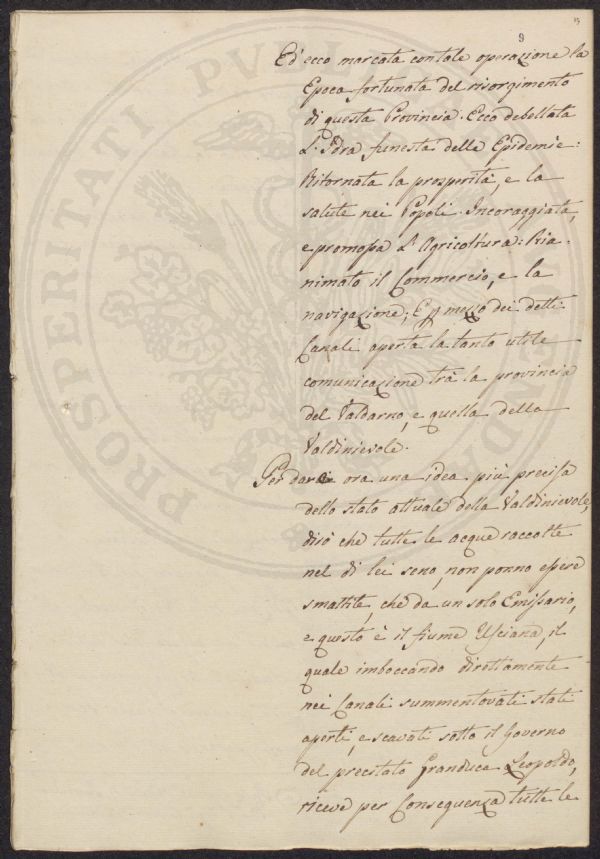 15
9
Ed ecco marcata con tale operazione la
Epoca fortunata del risorgimento
di questa Provincia. Ecco debellata
L'Idra funesta delle Epidemie:
Ritornata la prosperità, e la
salute nei Popoli. Incoraggiata,
e promossa L'Agricoltura: Ria-
nimato il Commercio, e la
navigazione; E p mezzo dei detti
Canali aperta la tanto utile
comunicazione trà la provincia
del Valdarno, e quella della
Valdinievole.
Per dare ora una idea più precisa
dello stato attuale della Valdinievole,
dirò che tutte le acque raccolte
nel di lei seno, non ponno essere
smaltite, che da un solo Emissario,
e questo è il fiume Usciana, il
quale imboccando direttamente
nei Canali summentovati stati
aperti, e scavati sotto il Governo
del prestato Granduca Leopoldo,
riceve per Conseguenza tutte le
PROSPERITATI PVBLI